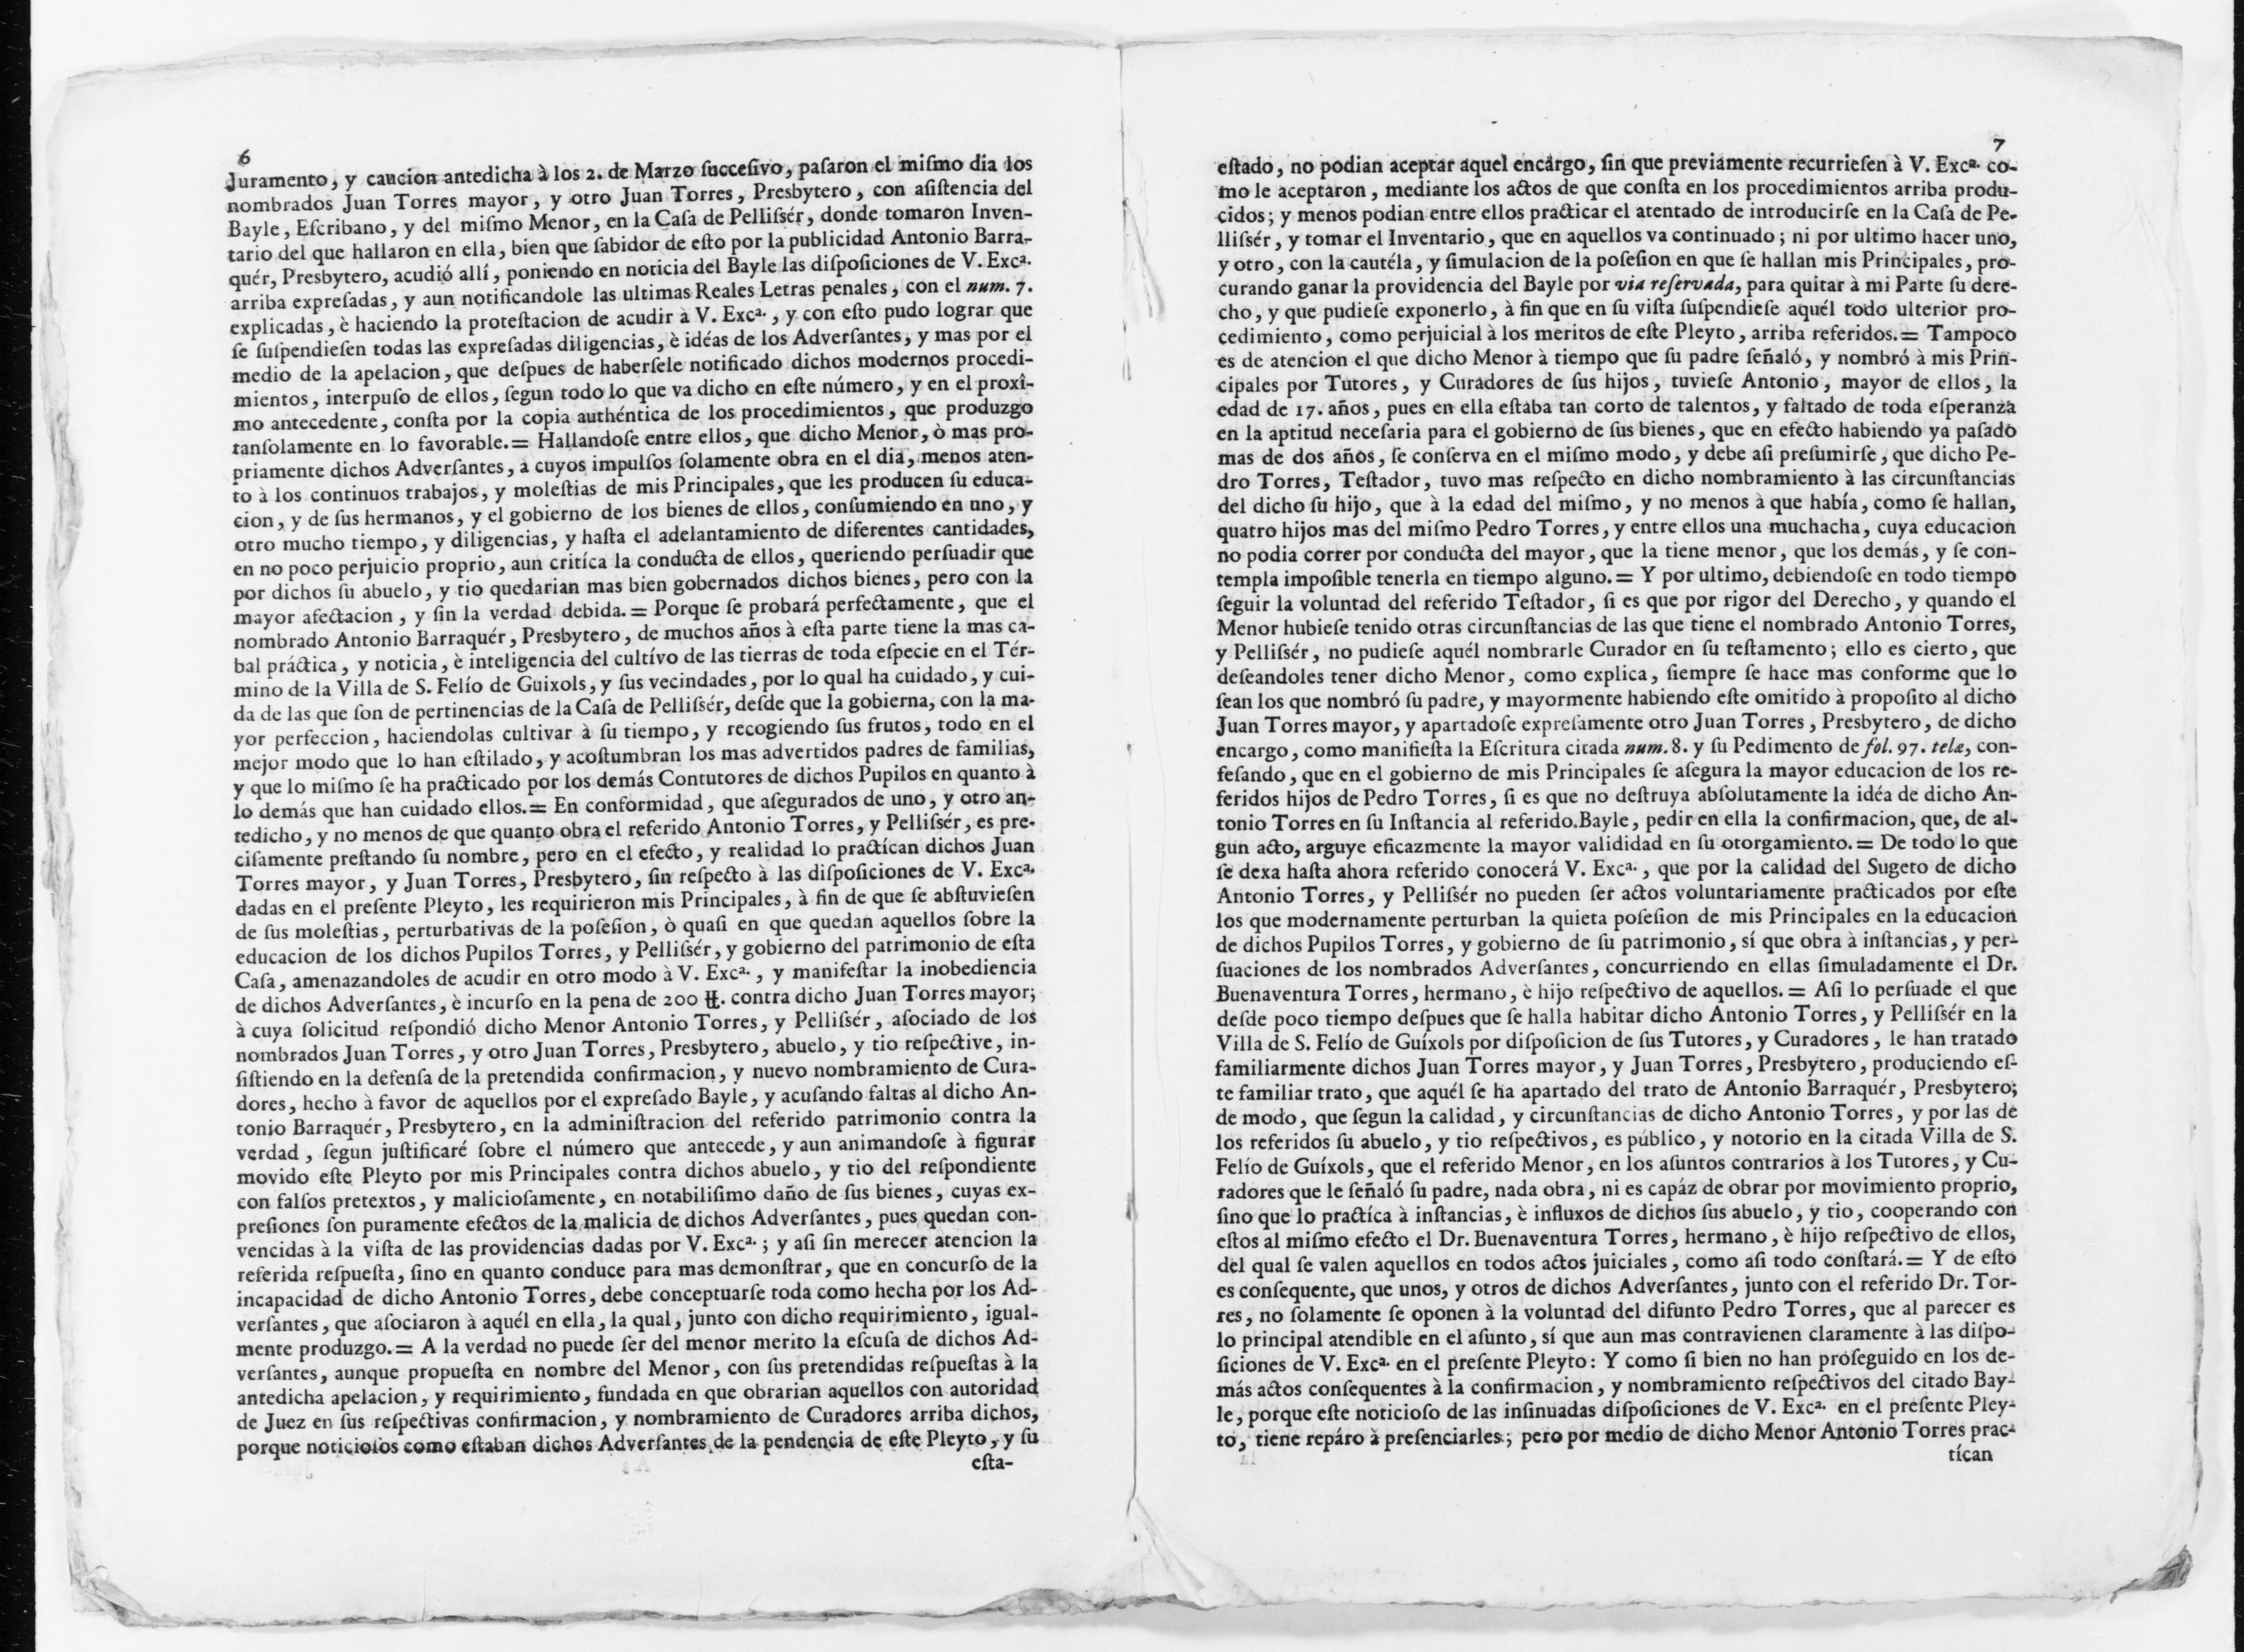 6
Juramento, y caucion antedicha à los 2. de Marzo ſucceſivo, paſaron el miſmo dia los
nombrados Juan Torres mayor, y otro Juan Torres, Presbytero, con aſiſtencia del
Bayle, Eſcribano, y del miſmo Menor, en la Caſa de Pelliſsér, donde tomaron Inven-
tario del que hallaron en ella, bien que ſabidor de eſto por la publicidad Antonio Barra-
quér, Presbytero, acudió allí, poniendo en noticia del Bayle las diſpoſiciones de V. Excª.
arriba expreſadas, y aun notificandole las ultimas Reales Letras penales, con el num. 7.
explicadas, è haciendo la proteſtacion de acudir à V. Excª., y con eſto pudo lograr que
ſe ſuſpendieſen todas las expreſadas diligencias, è idéas de los Adverſantes, y mas por el
medio de la apelacion, que deſpues de haberſele notificado dichos modernos procedi-
mientos, interpuſo de ellos, ſegun todo lo que va dicho en eſte número, y en el proxî-
mo antecedente, conſta por la copia authéntica de los procedimientos, que produzgo
tanſolamente en lo favorable.= Hallandoſe entre ellos, que dicho Menor, ò mas pro-
priamente dichos Adverſantes, à cuyos impulſos ſolamente obra en el dia, menos aten-
to à los continuos trabajos, y moleſtias de mis Principales, que les producen ſu educa-
cion, y de ſus hermanos, y el gobierno de los bienes de ellos, conſumiendo en uno, y
otro mucho tiempo, y diligencias, y haſta el adelantamiento de diferentes cantidades,
en no poco perjuicio proprio, aun critíca la conducta de ellos, queriendo perſuadir que
por dichos ſu abuelo, y tio quedarian mas bien gobernados dichos bienes, pero con la
mayor afectacion, y ſin la verdad debida.= Porque ſe probará perfectamente, que el
nombrado Antonio Barraquér, Presbytero, de muchos años à eſta parte tiene la mas ca-
bal práctica, y noticia, è inteligencia del cultívo de las tierras de toda eſpecie en el Tér-
mino de la Villa de S. Felío de Guixols, y ſus vecindades, por lo qual ha cuidado, y cui-
da de las que ſon de pertinencias de la Caſa de Pelliſsér, deſde que la gobierna, con la ma-
yor perfeccion, haciendolas cultivar à ſu tiempo, y recogiendo ſus frutos, todo en el
mejor modo que lo han eſtilado, y acoſtumbran los mas advertidos padres de familias,
y que lo miſmo ſe ha practicado por los demás Contutores de dichos Pupilos en quanto à
lo demás que han cuidado ellos.= En conformidad, que aſegurados de uno, y otro an-
tedicho, y no menos de que quanto obra el referido Antonio Torres, y Pelliſsér, es pre-
ciſamente preſtando ſu nombre, pero en el efecto, y realidad lo practícan dichos Juan
Torres mayor, y Juan Torres, Presbytero, ſin reſpecto à las diſpoſiciones de V. Excª.
dadas en el preſente Pleyto, les requirieron mis Principales, à fin de que ſe abſtuvieſen
de ſus moleſtias, perturbativas de la poſeſion, ò quaſi en que quedan aquellos ſobre la
educacion de los dichos Pupilos Torres, y Pelliſsér, y gobierno del patrimonio de eſta
Caſa, amenazandoles de acudir en otro modo à V. Excª., y manifeſtar la inobediencia
de dichos Adverſantes, è incurſo en la pena de 200 ℔. contra dicho Juan Torres mayor;
à cuya ſolicitud reſpondió dicho Menor Antonio Torres, y Pelliſsér, aſociado de los
nombrados Juan Torres, y otro Juan Torres, Presbytero, abuelo, y tio reſpective, in-
ſiſtiendo en la defenſa de la pretendida confirmacion, y nuevo nombramiento de Cura-
dores, hecho à favor de aquellos por el expreſado Bayle, y acuſando faltas al dicho An-
tonio Barraquér, Presbytero, en la adminiſtracion del referido patrimonio contra la
verdad, ſegun juſtificaré ſobre el número que antecede, y aun animandoſe à figurar
movido eſte Pleyto por mis Principales contra dichos abuelo, y tio del reſpondiente
con falſos pretextos, y malicioſamente, en notabiliſimo daño de ſus bienes, cuyas ex-
preſiones ſon puramente efectos de la malicia de dichos Adverſantes, pues quedan con-
vencidas à la viſta de las providencias dadas por V. Excª.; y aſi ſin merecer atencion la
referida reſpueſta, ſino en quanto conduce para mas demonſtrar, que en concurſo de la
incapacidad de dicho Antonio Torres, debe conceptuarſe toda como hecha por los Ad-
verſantes, que aſociaron à aquél en ella, la qual, junto con dicho requirimiento, igual-
mente produzgo.= A la verdad no puede ſer del menor merito la eſcuſa de dichos Ad-
verſantes, aunque propueſta en nombre del Menor, con ſus pretendidas reſpueſtas à la
antedicha apelacion, y requirimiento, fundada en que obrarian aquellos con autoridad
de Juez en ſus reſpectivas confirmacion, y nombramiento de Curadores arriba dichos,
porque noticioſos como eſtaban dichos Adverſantes de la pendencia de eſte Pleyto, y ſu
eſta-
7
eſtado, no podian aceptar aquel encárgo, ſin que previamente recurrieſen à V. Excª. co-
mo le aceptaron, mediante los actos de que conſta en los procedimientos arriba produ-
cidos; y menos podian entre ellos practicar el atentado de introducirſe en la Caſa de Pe-
lliſsér, y tomar el Inventario, que en aquellos va continuado; ni por ultimo hacer uno,
y otro, con la cautéla, y ſimulacion de la poſeſion en que ſe hallan mis Principales, pro-
curando ganar la providencia del Bayle por via reſervada, para quitar à mi Parte ſu dere-
cho, y que pudieſe exponerlo, à fin que en ſu viſta ſuſpendieſe aquél todo ulterior pro-
cedimiento, como perjuicial à los meritos de eſte Pleyto, arriba referidos.= Tampoco
es de atencion el que dicho Menor à tiempo que ſu padre ſeñaló, y nombró à mis Prin-
cipales por Tutores, y Curadores de ſus hijos, tuvieſe Antonio, mayor de ellos, la
edad de 17. años, pues en ella eſtaba tan corto de talentos, y faltado de toda eſperanza
en la aptitud neceſaria para el gobierno de ſus bienes, que en efecto habiendo ya paſado
mas de dos años, ſe conſerva en el miſmo modo, y debe aſi preſumirſe, que dicho Pe-
dro Torres, Teſtador, tuvo mas reſpecto en dicho nombramiento à las circunſtancias
del dicho ſu hijo, que à la edad del miſmo, y no menos à que había, como ſe hallan,
quatro hijos mas del miſmo Pedro Torres, y entre ellos una muchacha, cuya educacion
no podia correr por conducta del mayor, que la tiene menor, que los demás, y ſe con-
templa impoſible tenerla en tiempo alguno.= Y por ultimo, debiendoſe en todo tiempo
ſeguir la voluntad del referido Teſtador, ſi es que por rigor del Derecho, y quando el
Menor hubieſe tenido otras circunſtancias de las que tiene el nombrado Antonio Torres,
y Pelliſsér, no pudieſe aquél nombrarle Curador en ſu teſtamento; ello es cierto, que
deſeandoles tener dicho Menor, como explica, ſiempre ſe hace mas conforme que lo
ſean los que nombró ſu padre, y mayormente habiendo eſte omitido à propoſito al dicho
Juan Torres mayor, y apartadoſe expreſamente otro Juan Torres, Presbytero, de dicho
encargo, como manifieſta la Eſcritura citada num. 8. y ſu Pedimento de fol. 97. telæ, con-
feſando, que en el gobierno de mis Principales ſe aſegura la mayor educacion de los re-
feridos hijos de Pedro Torres, ſi es que no deſtruya abſolutamente la idéa de dicho An-
tonio Torres en ſu Inſtancia al referido.Bayle, pedir en ella la confirmacion, que, de al-
gun acto, arguye eficazmente la mayor valididad en ſu otorgamiento.= De todo lo que
ſe dexa haſta ahora referido conocerá V. Excª., que por la calidad del Sugeto de dicho
Antonio Torres, y Pelliſsér no pueden ſer actos voluntariamente practicados por eſte
los que modernamente perturban la quieta poſeſion de mis Principales en la educacion
de dichos Pupilos Torres, y gobierno de ſu patrimonio, sí que obra à inſtancias, y per-
ſuaciones de los nombrados Adverſantes, concurriendo en ellas ſimuladamente el Dr.
Buenaventura Torres, hermano, è hijo reſpectivo de aquellos.= Aſi lo perſuade el que
deſde poco tiempo deſpues que ſe halla habitar dicho Antonio Torres, y Pelliſsér en la
Villa de S. Felío de Guíxols por diſpoſicion de ſus Tutores, y Curadores, le han tratado
familiarmente dichos Juan Torres mayor, y Juan Torres, Presbytero, produciendo eſ-
te familiar trato, que aquél ſe ha apartado del trato de Antonio Barraquér, Presbytero;
de modo, que ſegun la calidad, y circunſtancias de dicho Antonio Torres, y por las de
los referidos ſu abuelo, y tio reſpectivos, es público, y notorio en la citada Villa de S.
Felío de Guíxols, que el referido Menor, en los aſuntos contrarios à los Tutores, y Cu-
radores que le ſeñaló ſu padre, nada obra, ni es capáz de obrar por movimiento proprio,
ſino que lo practíca à inſtancias, è influxos de dichos ſus abuelo, y tio, cooperando con
eſtos al miſmo efecto el Dr. Buenaventura Torres, hermano, è hijo reſpectivo de ellos,
del qual ſe valen aquellos en todos actos juiciales, como aſi todo conſtará.= Y de eſto
es conſequente, que unos, y otros de dichos Adverſantes, junto con el referido Dr. Tor-
res, no ſolamente ſe oponen à la voluntad del difunto Pedro Torres, que al parecer es
lo principal atendible en el aſunto, sí que aun mas contravienen claramente à las diſpo-
ſiciones de V. Excª. en el preſente Pleyto: Y como ſi bien no han proſeguido en los de-
más actos conſequentes à la confirmacion, y nombramiento reſpectivos del citado Bay-
le, porque eſte noticioſo de las inſinuadas diſpoſiciones de V. Excª. en el preſente Pley-
to, tiene repáro à preſenciarles; pero por medio de dicho Menor Antonio Torres prac-
tícan